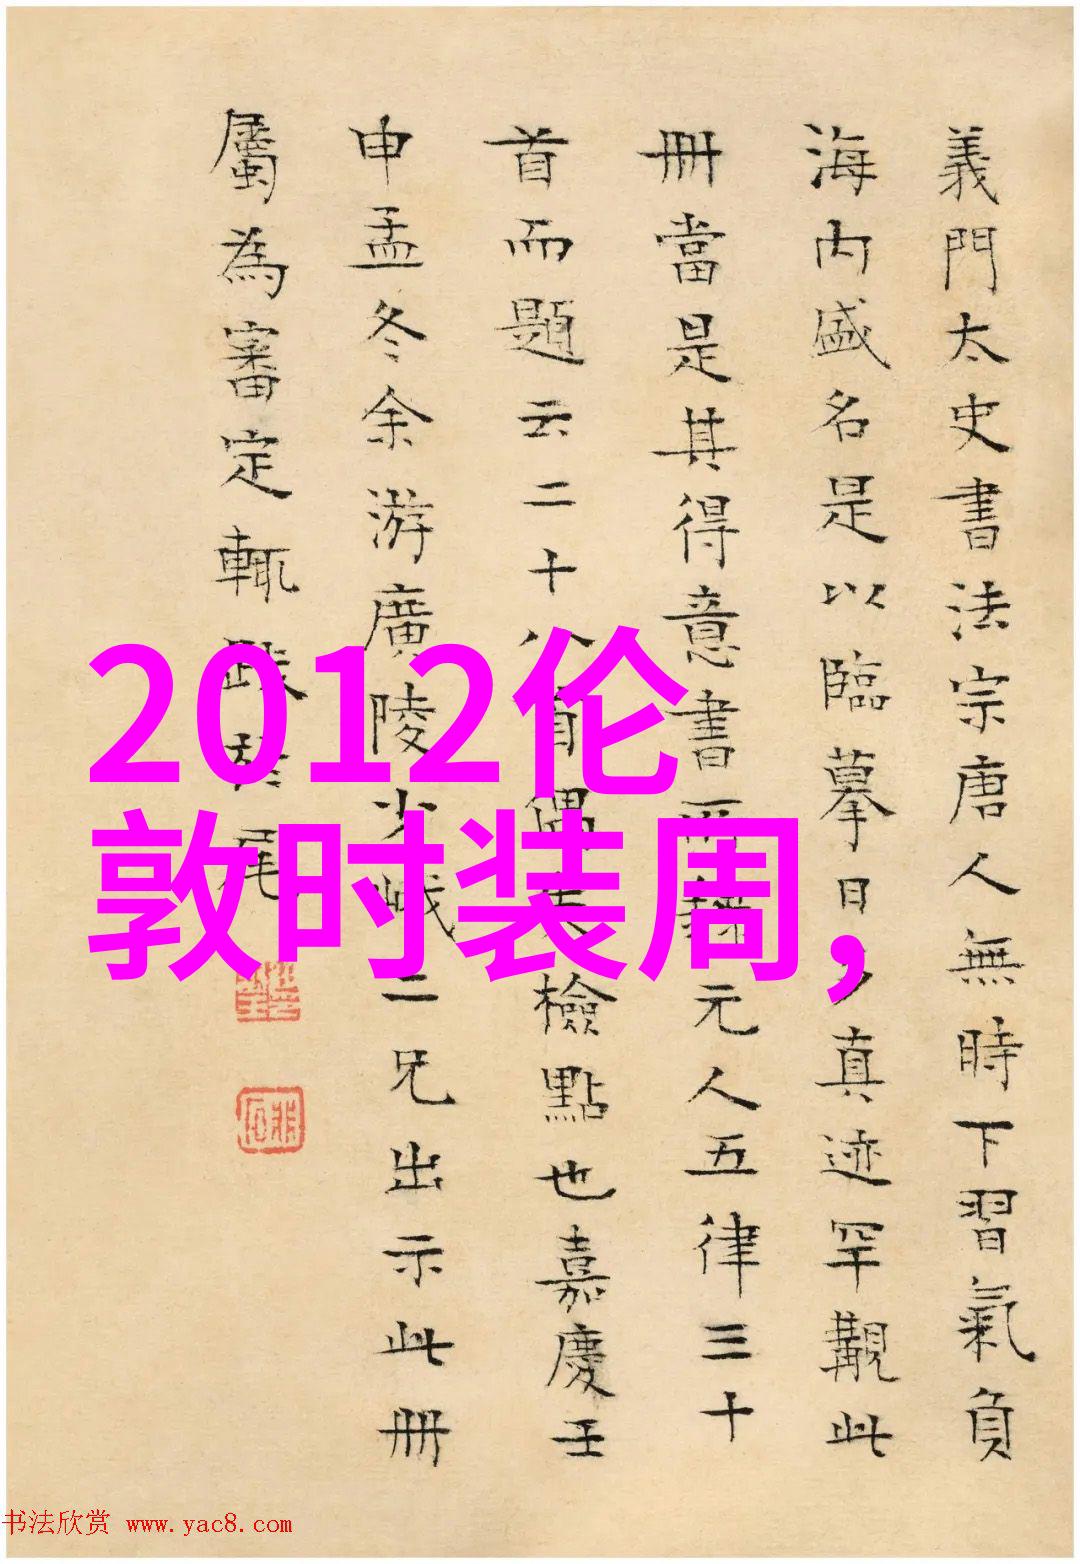 義門太史書法宗唐人無時下習氣負
海内盛名是以臨摹日夕真迹罕觀此
冊當是其得意書所錄元人五律三十
首而題云二十八首偶失檢點也嘉慶壬
申孟冬余游廣陵少峨二兄出示此冊
屬為審定輒跋於尾
2012伦
敦时装周,
书法欣赏 www.yac8.com